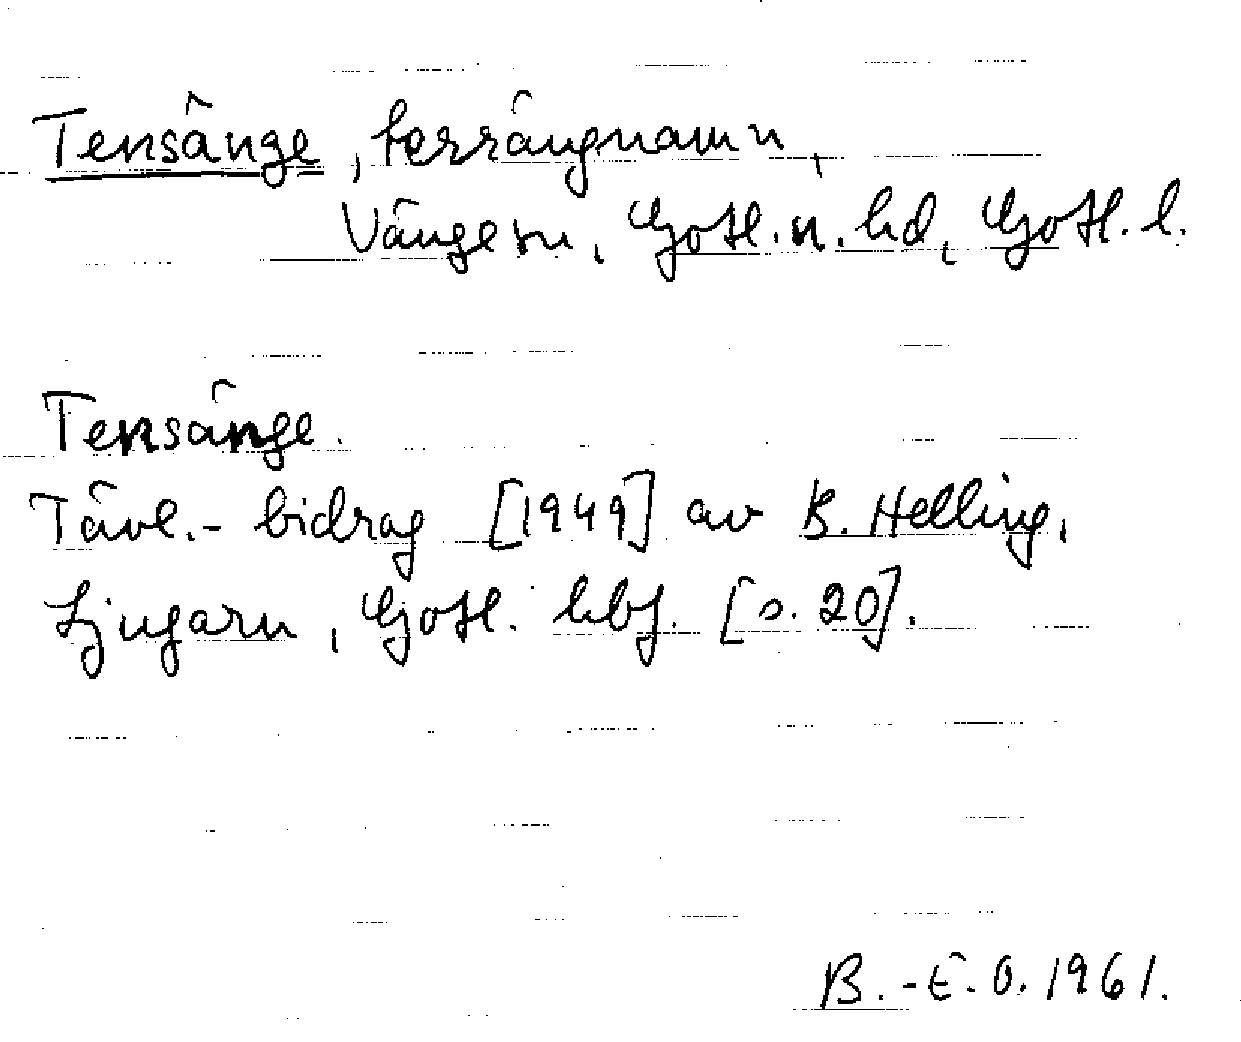 Tensänge, terrängnamn,
Vänge sn, Gotl. n. hd, Gotl. l.
Tensänge.
Tävl.-bidrag [1949] av B. Helling,
Ljugarn, Gotl. hbf. [s. 20].
B.-E. O. 1961.